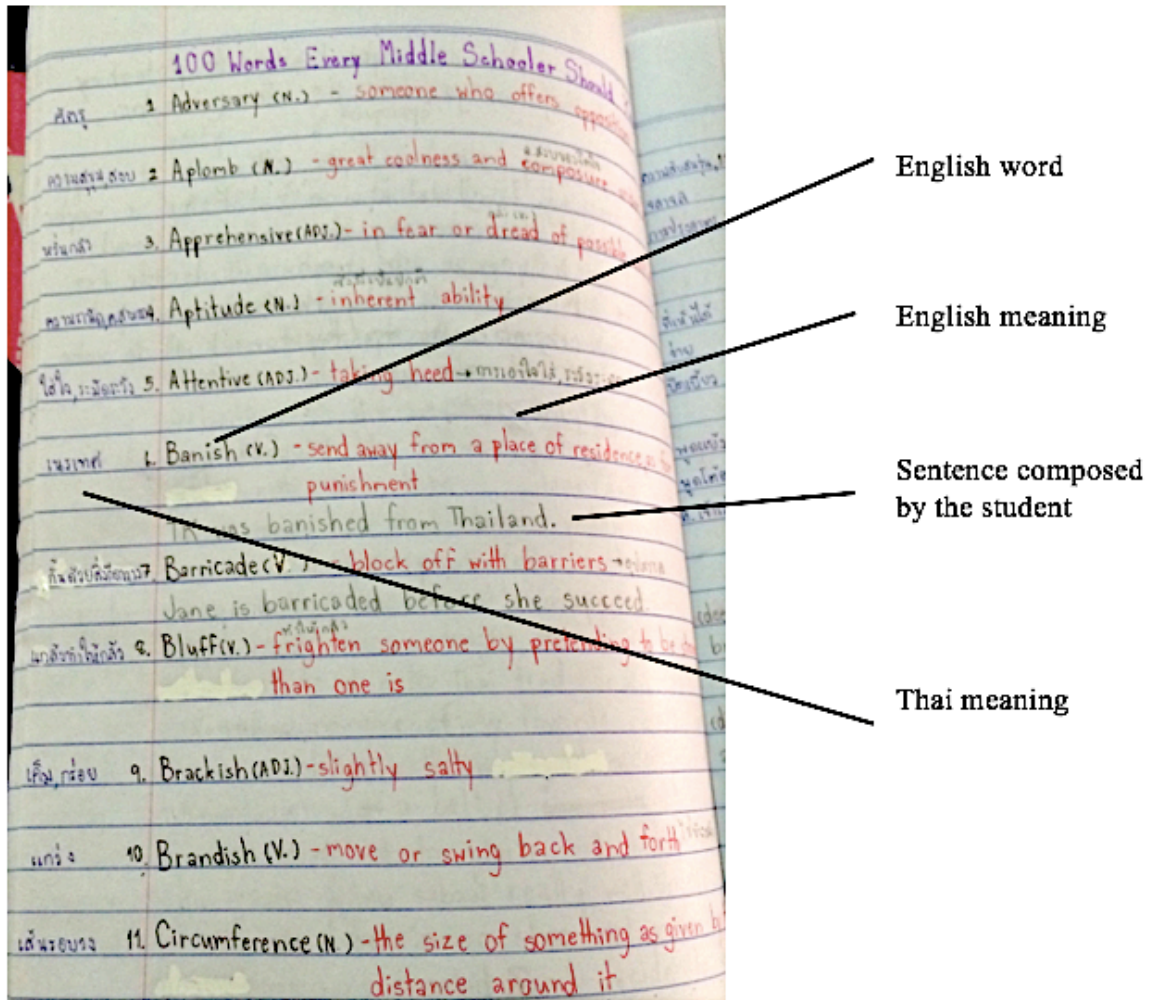 100 Words Every Middle Schooler Should
ศัตรู 1 Adversary (N.) - someone who offers
2 Aplomb (N.) - great coolness and composure
หวั่นกลัว 3. Apprehensive (ADJ.) - in fear or dread of possible
Aptitude (N.) - inherent ability
ใส่ใจ, ระมัดระวัง 5. Attentive (ADJ.) - taking heed →
เนรเทศ 6. Banish (V.) - send away from a place of residence
punishment
was banished from Thailand.
7. Barricade (V.) - block off with barriers →
Jane is barricaded before she succeed.
แกล้งทำให้กลัว 8. Bluff (V.) - frighten someone by pretending to be
than one is
เค็ม, กร่อย 9. Brackish (ADJ.) - slightly salty
แกว่ง 10. Brandish (V.) - move or swing back and forth
เส้นรอบวง 11. Circumference (N.) - the size of something as given
distance around it
English word
English meaning
Sentence composed
by the student
Thai meaning